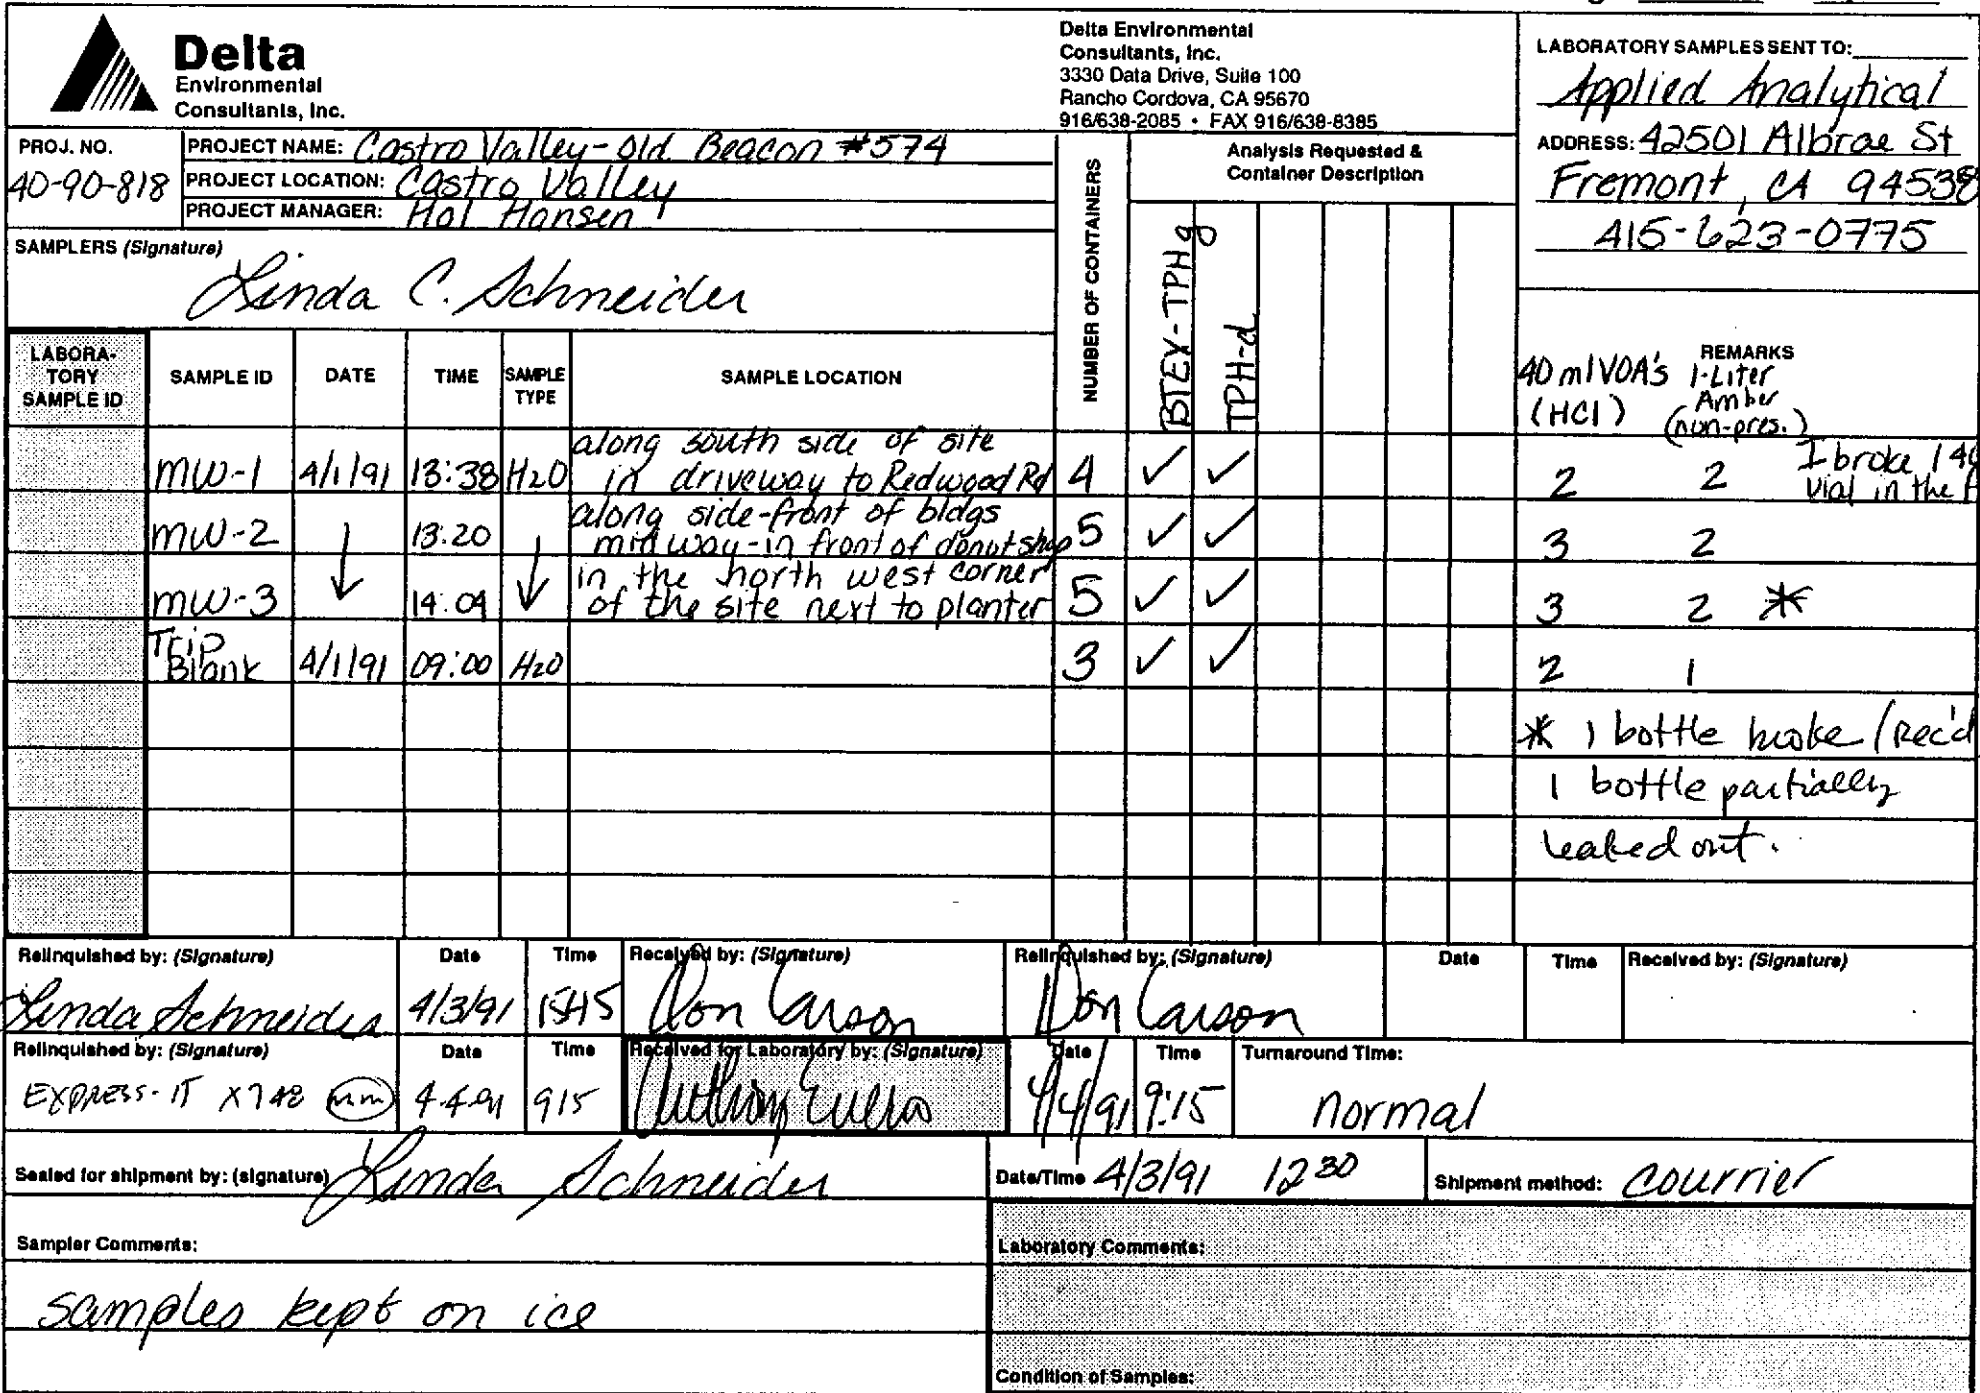 Delta
Environmental
Consultants, Inc.
Delta Environmental
Consultants, Inc.
3330 Data Drive, Suite 100
Rancho Cordova, CA 95670
916/638-2085 • FAX 916/638-8385
LABORATORY SAMPLES SENT TO:
Applied Analytical
ADDRESS: 42501 Albrae St
Fremont, CA 94538
415-623-0775
PROJ. NO.
40-90-818
PROJECT NAME: Castro Valley-Old Beacon #574
PROJECT LOCATION: Castro Valley
PROJECT MANAGER: Hal Hansen
SAMPLERS (Signature)
Linda C. Schneider
NUMBER OF CONTAINERS
Analysis Requested &
Container Description
BTEX-TPHg
TPH-d
LABORA-
TORY
SAMPLE ID
SAMPLE ID
DATE
TIME
SAMPLE
TYPE
SAMPLE LOCATION
REMARKS
40 ml VOA's
(HCl)
1-Liter
Amber
(non-pres.)
MW-1 4/1/91 13:38 H2O along south side of site
in driveway to Redwood Rd 4 ✓ ✓ 2 2 I broke 1 40
vial in the
MW-2 ↓ 13:20 ↓ along side-front of bldgs
midway-in front of donut shop 5 ✓ ✓ 3 2
MW-3 14:04 in the north west corner
of the site next to planter 5 ✓ ✓ 3 2 *
Trip
Blank 4/1/91 09:00 H2O 3 ✓ ✓ 2 1
* 1 bottle broke (Rec'd
1 bottle partially
leaked out.
Relinquished by: (Signature) Date Time Received by: (Signature) Relinquished by: (Signature) Date Time Received by: (Signature)
Linda Schneider 4/3/91 1545 Don Carson Don Carson
Relinquished by: (Signature) Date Time Received for Laboratory by: (Signature) Date Time Turnaround Time:
EXPRESS-IT X742 mm 4-4-91 915 4/4/91 9:15 normal
Sealed for shipment by: (signature) Linda Schneider Date/Time 4/3/91 1230 Shipment method: courrier
Sampler Comments:
samples kept on ice
Laboratory Comments:
Condition of Samples: